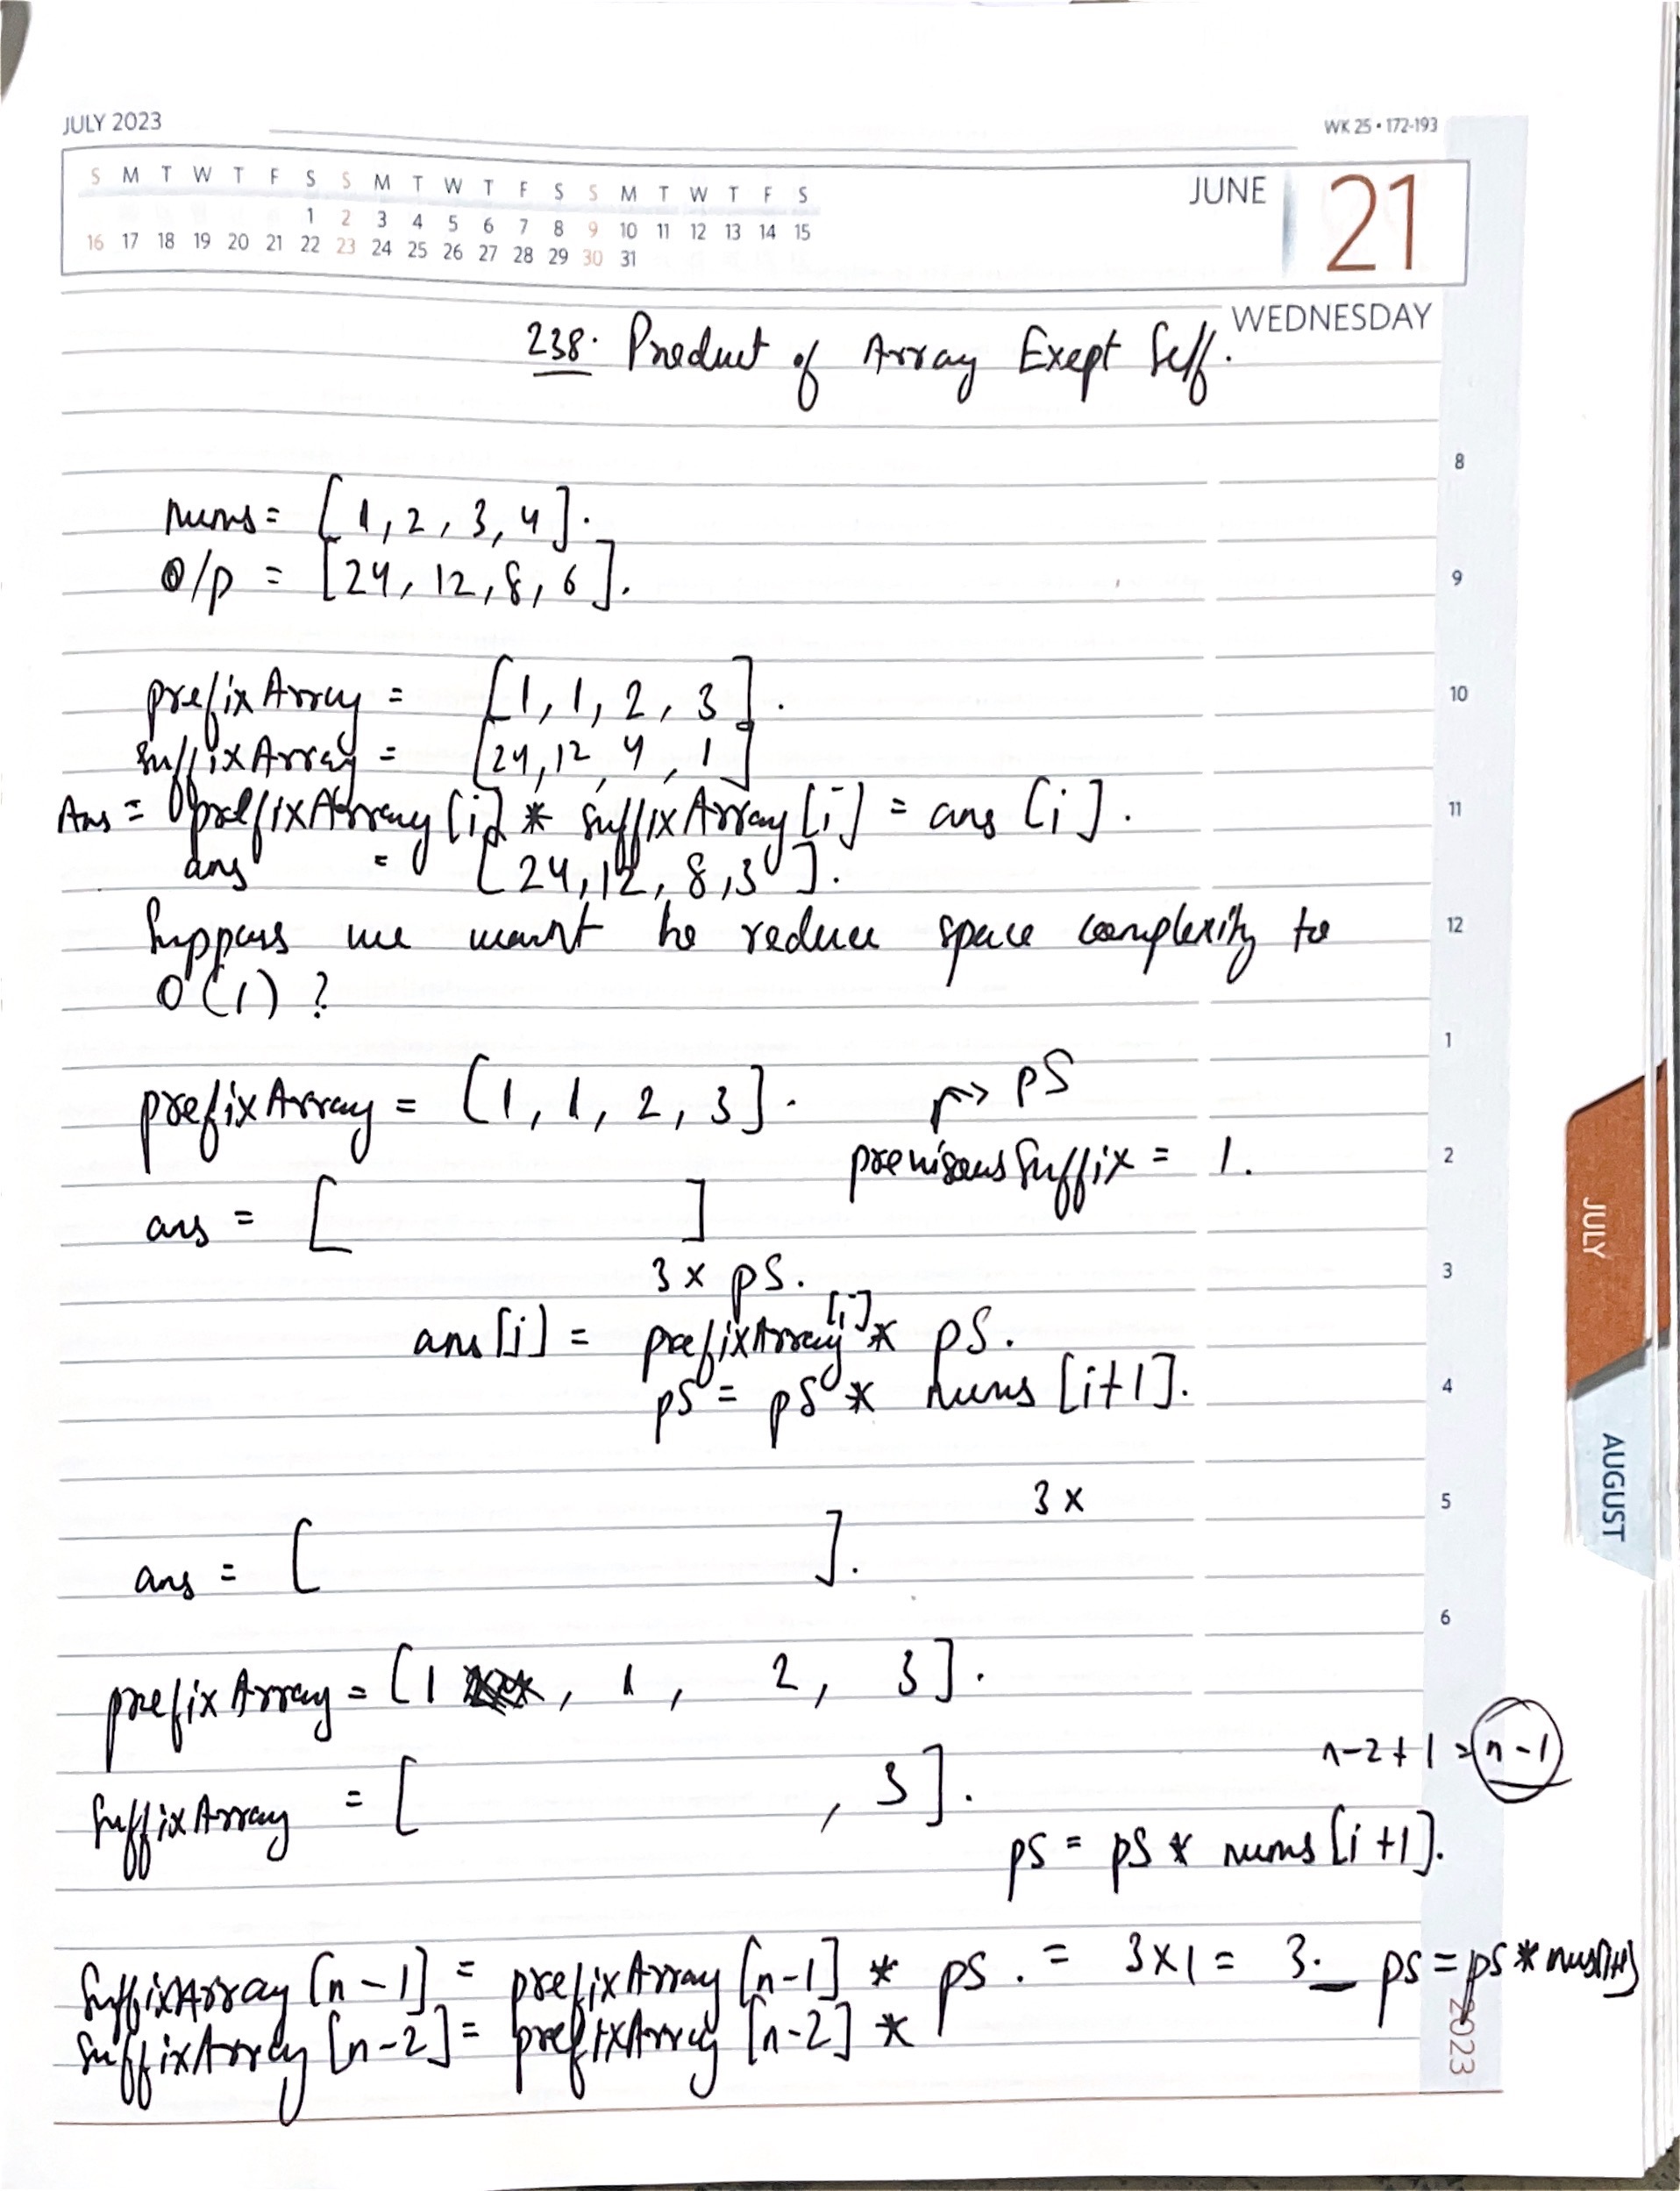 JULY 2023
WK 25 • 172-193
S M T W T F S S M T W T F S S M T W T F S
1 2 3 4 5 6 7 8 9 10 11 12 13 14 15
16 17 18 19 20 21 22 23 24 25 26 27 28 29 30 31
JUNE 21
WEDNESDAY
238. Product of Array Exept Self.
8
nums = [1, 2, 3, 4].
O/p = [24, 12, 8, 6].
9
prefixArray = [1, 1, 2, 3].
10
suffixArray = [24, 12, 4, 1]
Ans = prefixArray[i] * suffixArray[i] = ans[i].
11
ans = [24, 12, 8, 3].
Suppose we want to reduce space complexity to
12
O(1) ?
1
→ pS
prefixArray = [1, 1, 2, 3].
previsous Suffix = 1.
2
ans = [ ]
3 x pS.
3
ans[i] = prefixArray[i] * pS.
pS = pS * nums[i+1].
4
3 x
5
ans = [ ].
6
prefixArray = [1 , 1, 2, 3].
n-2+1 = n-1
suffixArray = [ , 3].
pS = pS * nums[i+1].
SuffixArray[n-1] = prefixArray[n-1] * pS. = 3x1 = 3. pS = pS * nus[i+1]
SuffixArray[n-2] = prefixArray[n-2] *
2023
JULY
AUGUST